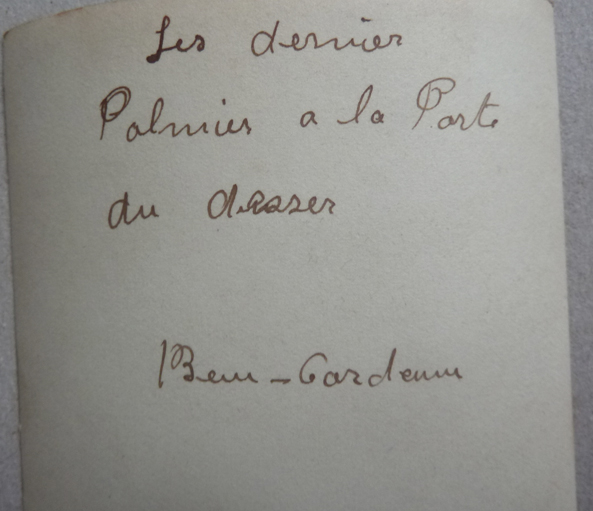 Les dernier
Palmier a la Porte
du desser
Ben-Gardenn